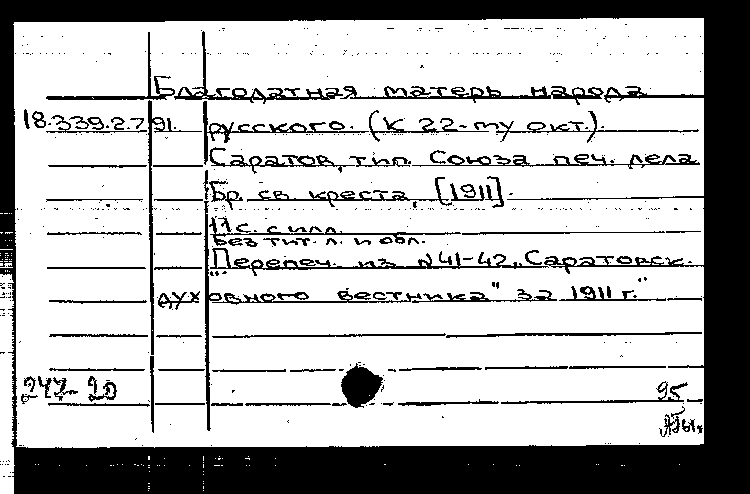 Благодатная матерь народа
18.339.2.7 91. русского. (К 22-му окт.).
Саратов, тип. Союза печ. дела
Бр. св. креста, [1911].
11 с. с илл.
Без тит. л. и обл.
"Перепеч. из №41-42 „Саратовск.
духовного вестника" за 1911 г."
247-20 95